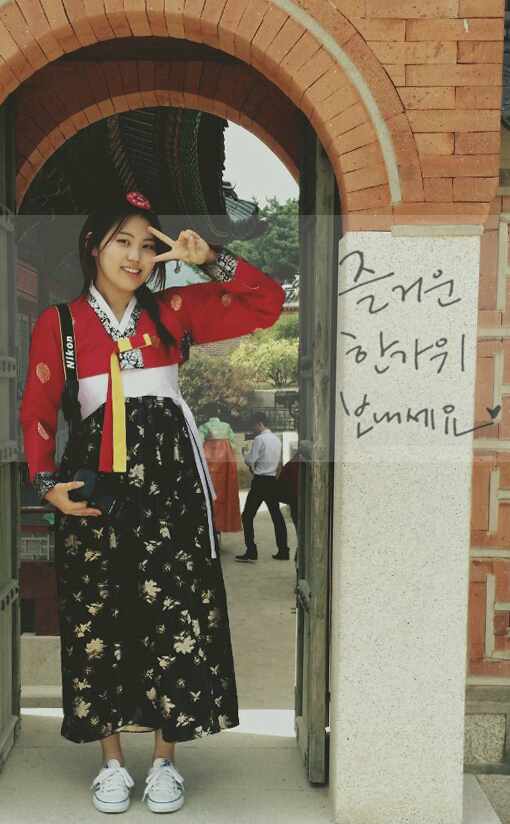 Nikon
즐거운
한가위
보내세요♥